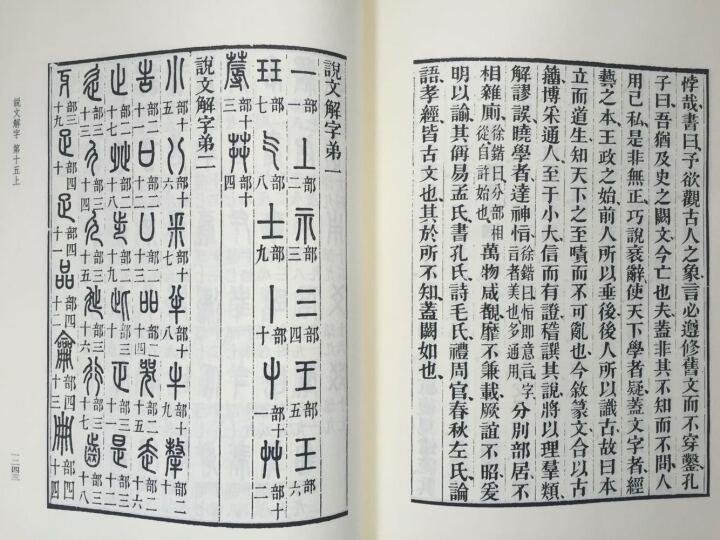 悖哉、書曰、予欲觀古人之象、言必遵修舊文而不穿鑿、孔
子曰、吾猶及史之闕文、今亡也夫、蓋非其不知而不問、人
用己私、是非無正、巧說衺辭、使天下學者疑、蓋文字者、經
藝之本、王政之始、前人所以垂後、後人所以識古、故曰、本
立而道生、知天下之至嘖而不可亂也、今敘篆文、合以古
籒、博采通人、至于小大、信而有證、稽譔其說、將以理羣類、
解謬誤、曉學者、達神恉、徐鍇曰恉即意旨字旨者美也多通用、分別部居、不
相雜廁、徐鍇曰分部相從自許始也、萬物咸覩、靡不兼載、厥誼不昭、爰
明以諭、其偁易孟氏、書孔氏、詩毛氏、禮周官、春秋左氏、論
語、孝經、皆古文也、其於所不知、蓋闕如也、
說文解字弟一
一部一 丄部二 示部三 三部四 王部五 玉部六
玨部七 气部八 士部九 丨部十 屮部十一 艸部十二
蓐部十三 茻部十四
說文解字弟二
小部十五 八部十六 釆部十七 半部十八 牛部十九 犛部二十
告部二十一 口部二十二 凵部二十三 吅部二十四 哭部二十五 走部二十六
止部二十七 癶部二十八 步部二十九 此部三十 正部三十一 是部三十二
辵部三十三 彳部三十四 廴部三十五 㢟部三十六 行部三十七 齒部三十八
牙部三十九 足部四十 疋部四十一 品部四十二 龠部四十三 冊部四十四
說文解字 第十五上
一二四三